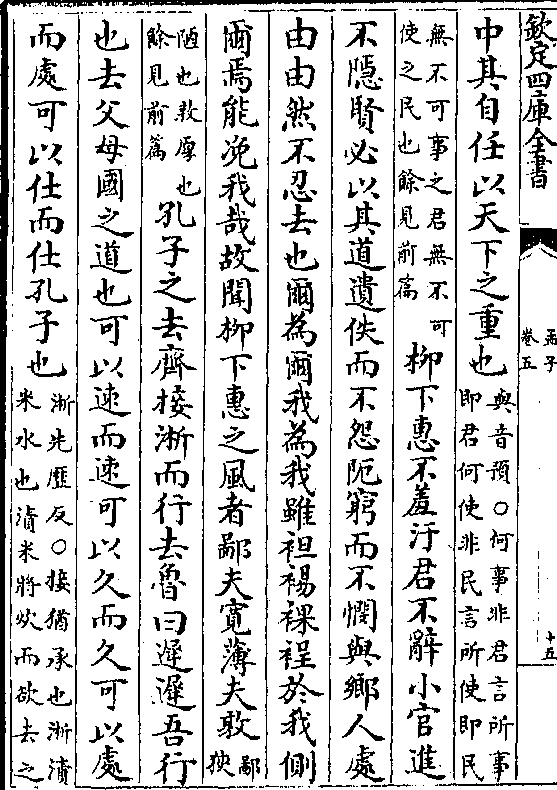 欽定四庫全書
孟子
卷五
十五
中其自任以天下之重也與音預○何事非君言所事
即君何使非民言所使即民
無不可事之君無不可
使之民也餘見前篇柳下惠不羞汙君不辭小官進
不隱賢必以其道遺佚而不怨阨窮而不憫與鄉人處
由由然不忍去也爾為爾我為我雖袒裼裸裎於我側
爾焉能浼我哉故聞柳下惠之風者鄙夫寬薄夫敦鄙
狹
陋也敦厚也
餘見前篇孔子之去齊接淅而行去魯曰遲遲吾行
也去父母國之道也可以速而速可以久而久可以處
而處可以仕而仕孔子也淅先歷反○接猶承也淅漬
米水也漬米將炊而欲去之